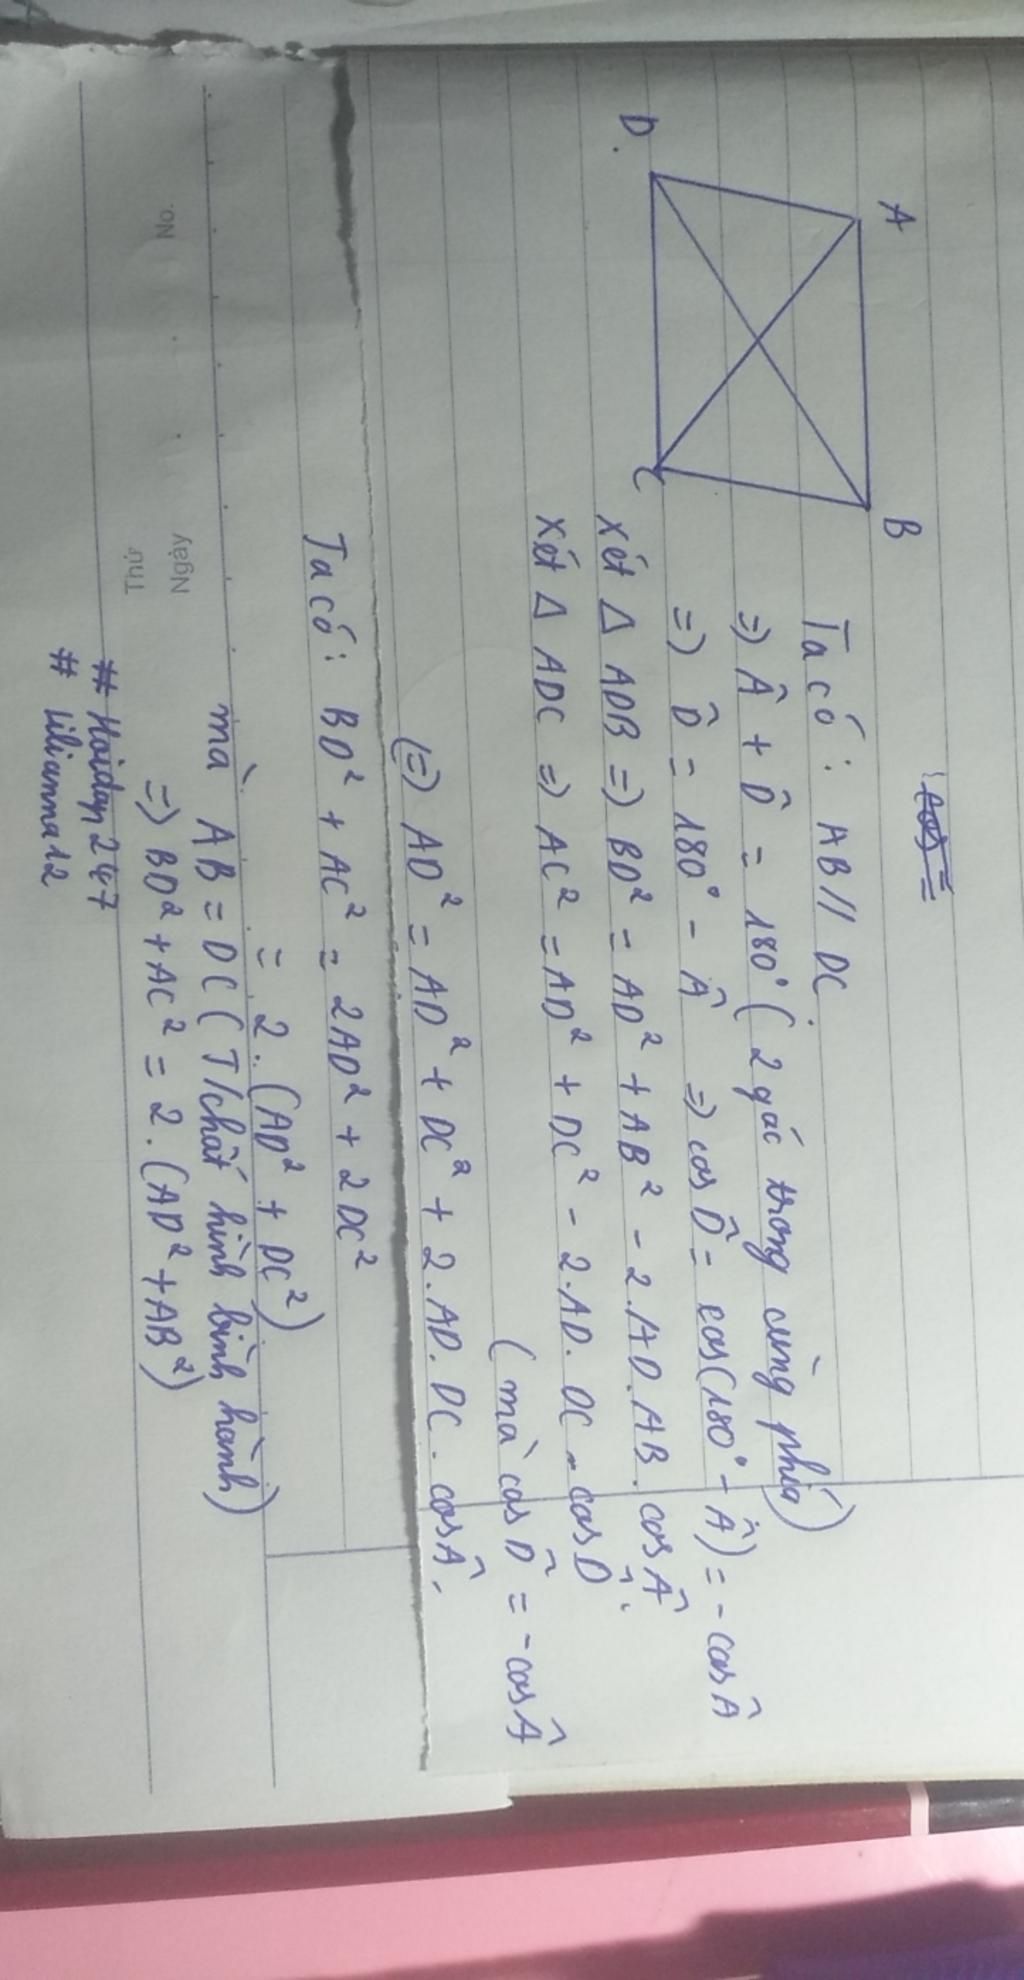 A
B
D
C
Ta có: AB // DC
=> Â + D̂ = 180° (2 góc trong cùng phía)
=> D̂ = 180° - Â => cos D̂ = cos(180° - Â) = - cos Â
Xét Δ ADB => BD² = AD² + AB² - 2.AD.AB.cos Â
Xét Δ ADC => AC² = AD² + DC² - 2.AD.DC.cos D̂.
(mà cos D̂ = - cos Â
(=) AD² = AD² + DC² + 2.AD.DC.cos Â.
Ta có: BD² + AC² = 2AD² + 2DC²
= 2.(AD² + DC²)
mà AB = DC (T/chất hình bình hành)
=> BD² + AC² = 2.(AD² + AB²)
No.
Ngày
Thứ
# Hoidap247
# lilianna12